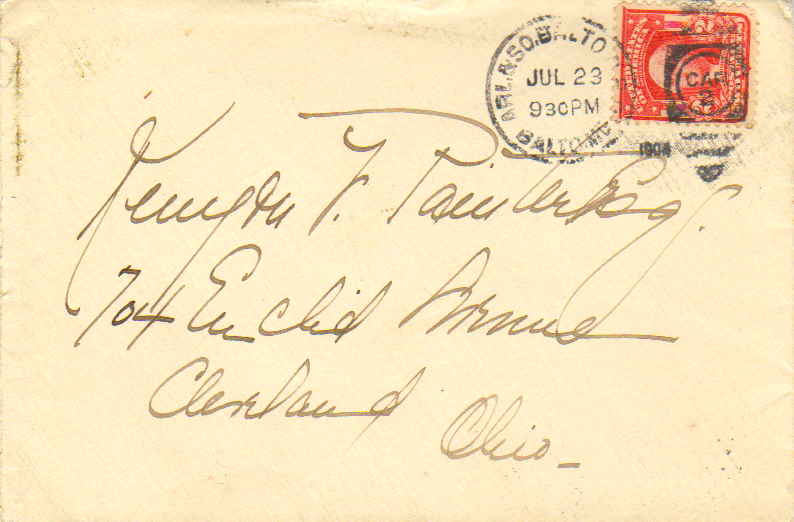 ARL. & SO. BALTO
JUL 23
930PM
BALTO. MD.
1904
CAR
2
Kenyon V. Painter Esq.
704 Euclid Avenue
Cleveland
Ohio